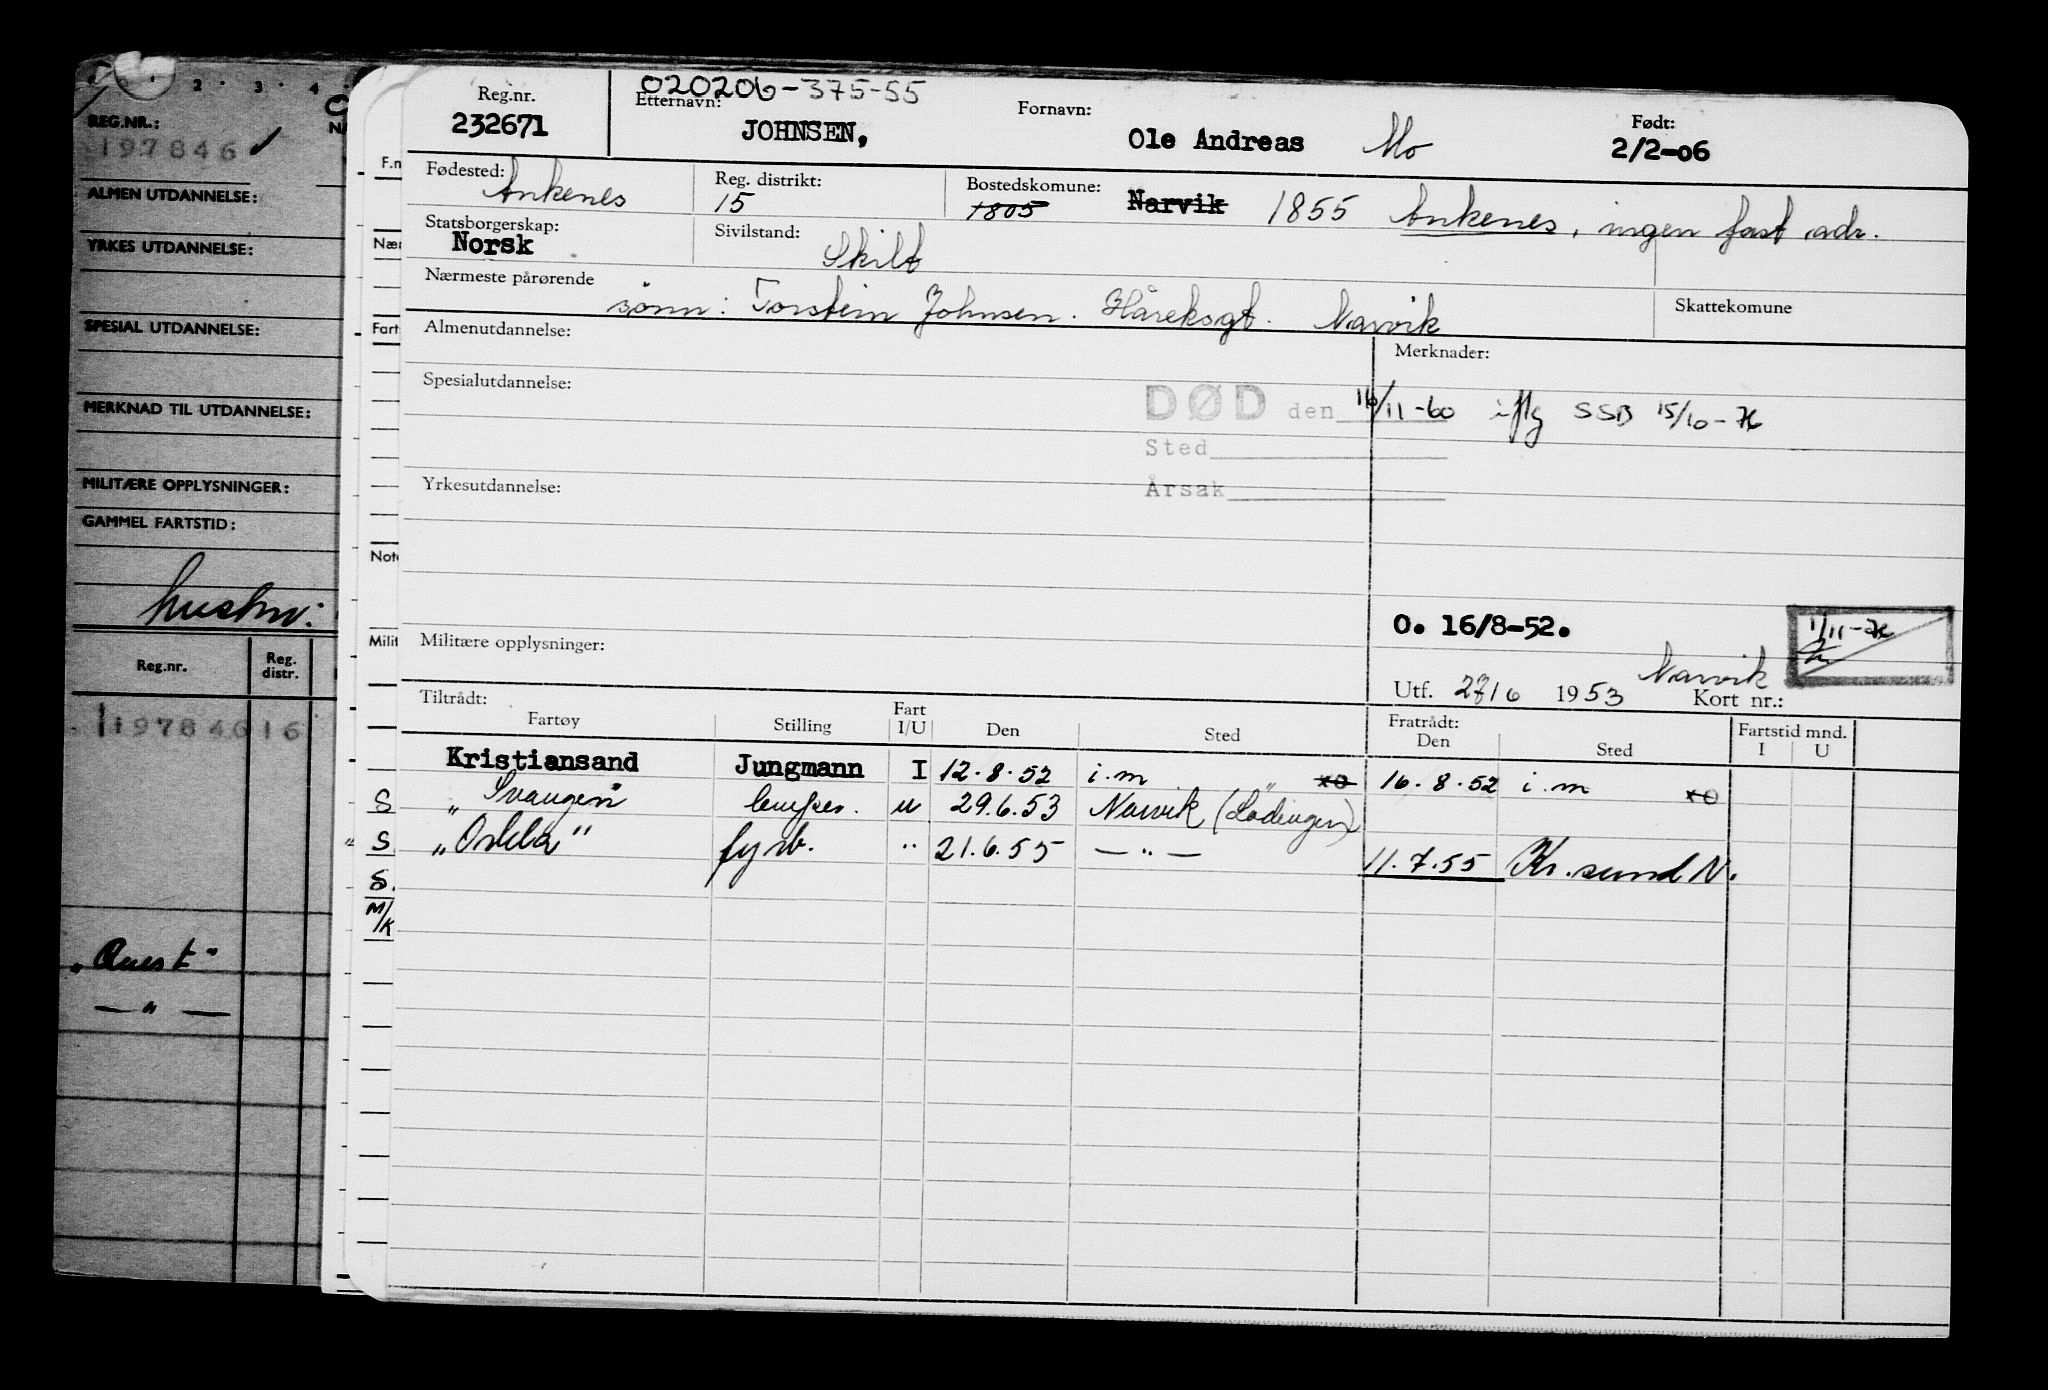 2 · 3 · 4
REG.NR.:
197846
ALMEN UTDANNELSE:
YRKES UTDANNELSE:
SPESIAL UTDANNELSE:
MERKNAD TIL UTDANNELSE:
MILITÆRE OPPLYSNINGER:
GAMMEL FARTSTID:
hustru:
Reg.nr. Reg. distr.
19784616
"Quest"
— " —
F.n
Nær
Fart
Not
Milit
S
" S
S.
M/K
020206-375-55
Reg.nr. Etternavn: Fornavn: Født:
232671 JOHNSEN, Ole Andreas Mo 2/2-06
Fødested: Ankenes Reg. distrikt: 15 Bostedskomune: 1805 Narvik 1855 Ankenes, ingen fast adr.
Statsborgerskap: Norsk Sivilstand: Skilt
Nærmeste pårørende
sønn: Torstein Johnsen. Håreksgt. Narvik Skattekomune
Almenutdannelse: Merknader:
Spesialutdannelse: DØD den 16/11-60 iflg SSB 15/10-76
Sted
Årsak
Yrkesutdannelse:
O. 16/8-52.
1/11-76
Militære opplysninger:
Utf. 27/6 1953 Narvik Kort nr.:
Tiltrådt: Fratrådt: Fartstid mnd.
Fartøy Stilling Fart I/U Den Sted Den Sted I U
Kristiansand Jungmann I 12.8.52 i.m xo 16.8.52 i.m xo
"Svangen" u 29.6.53 Narvik (Lødingen)
fyrb. " 21.6.55 — " — 11.7.55 Kr.sund N.